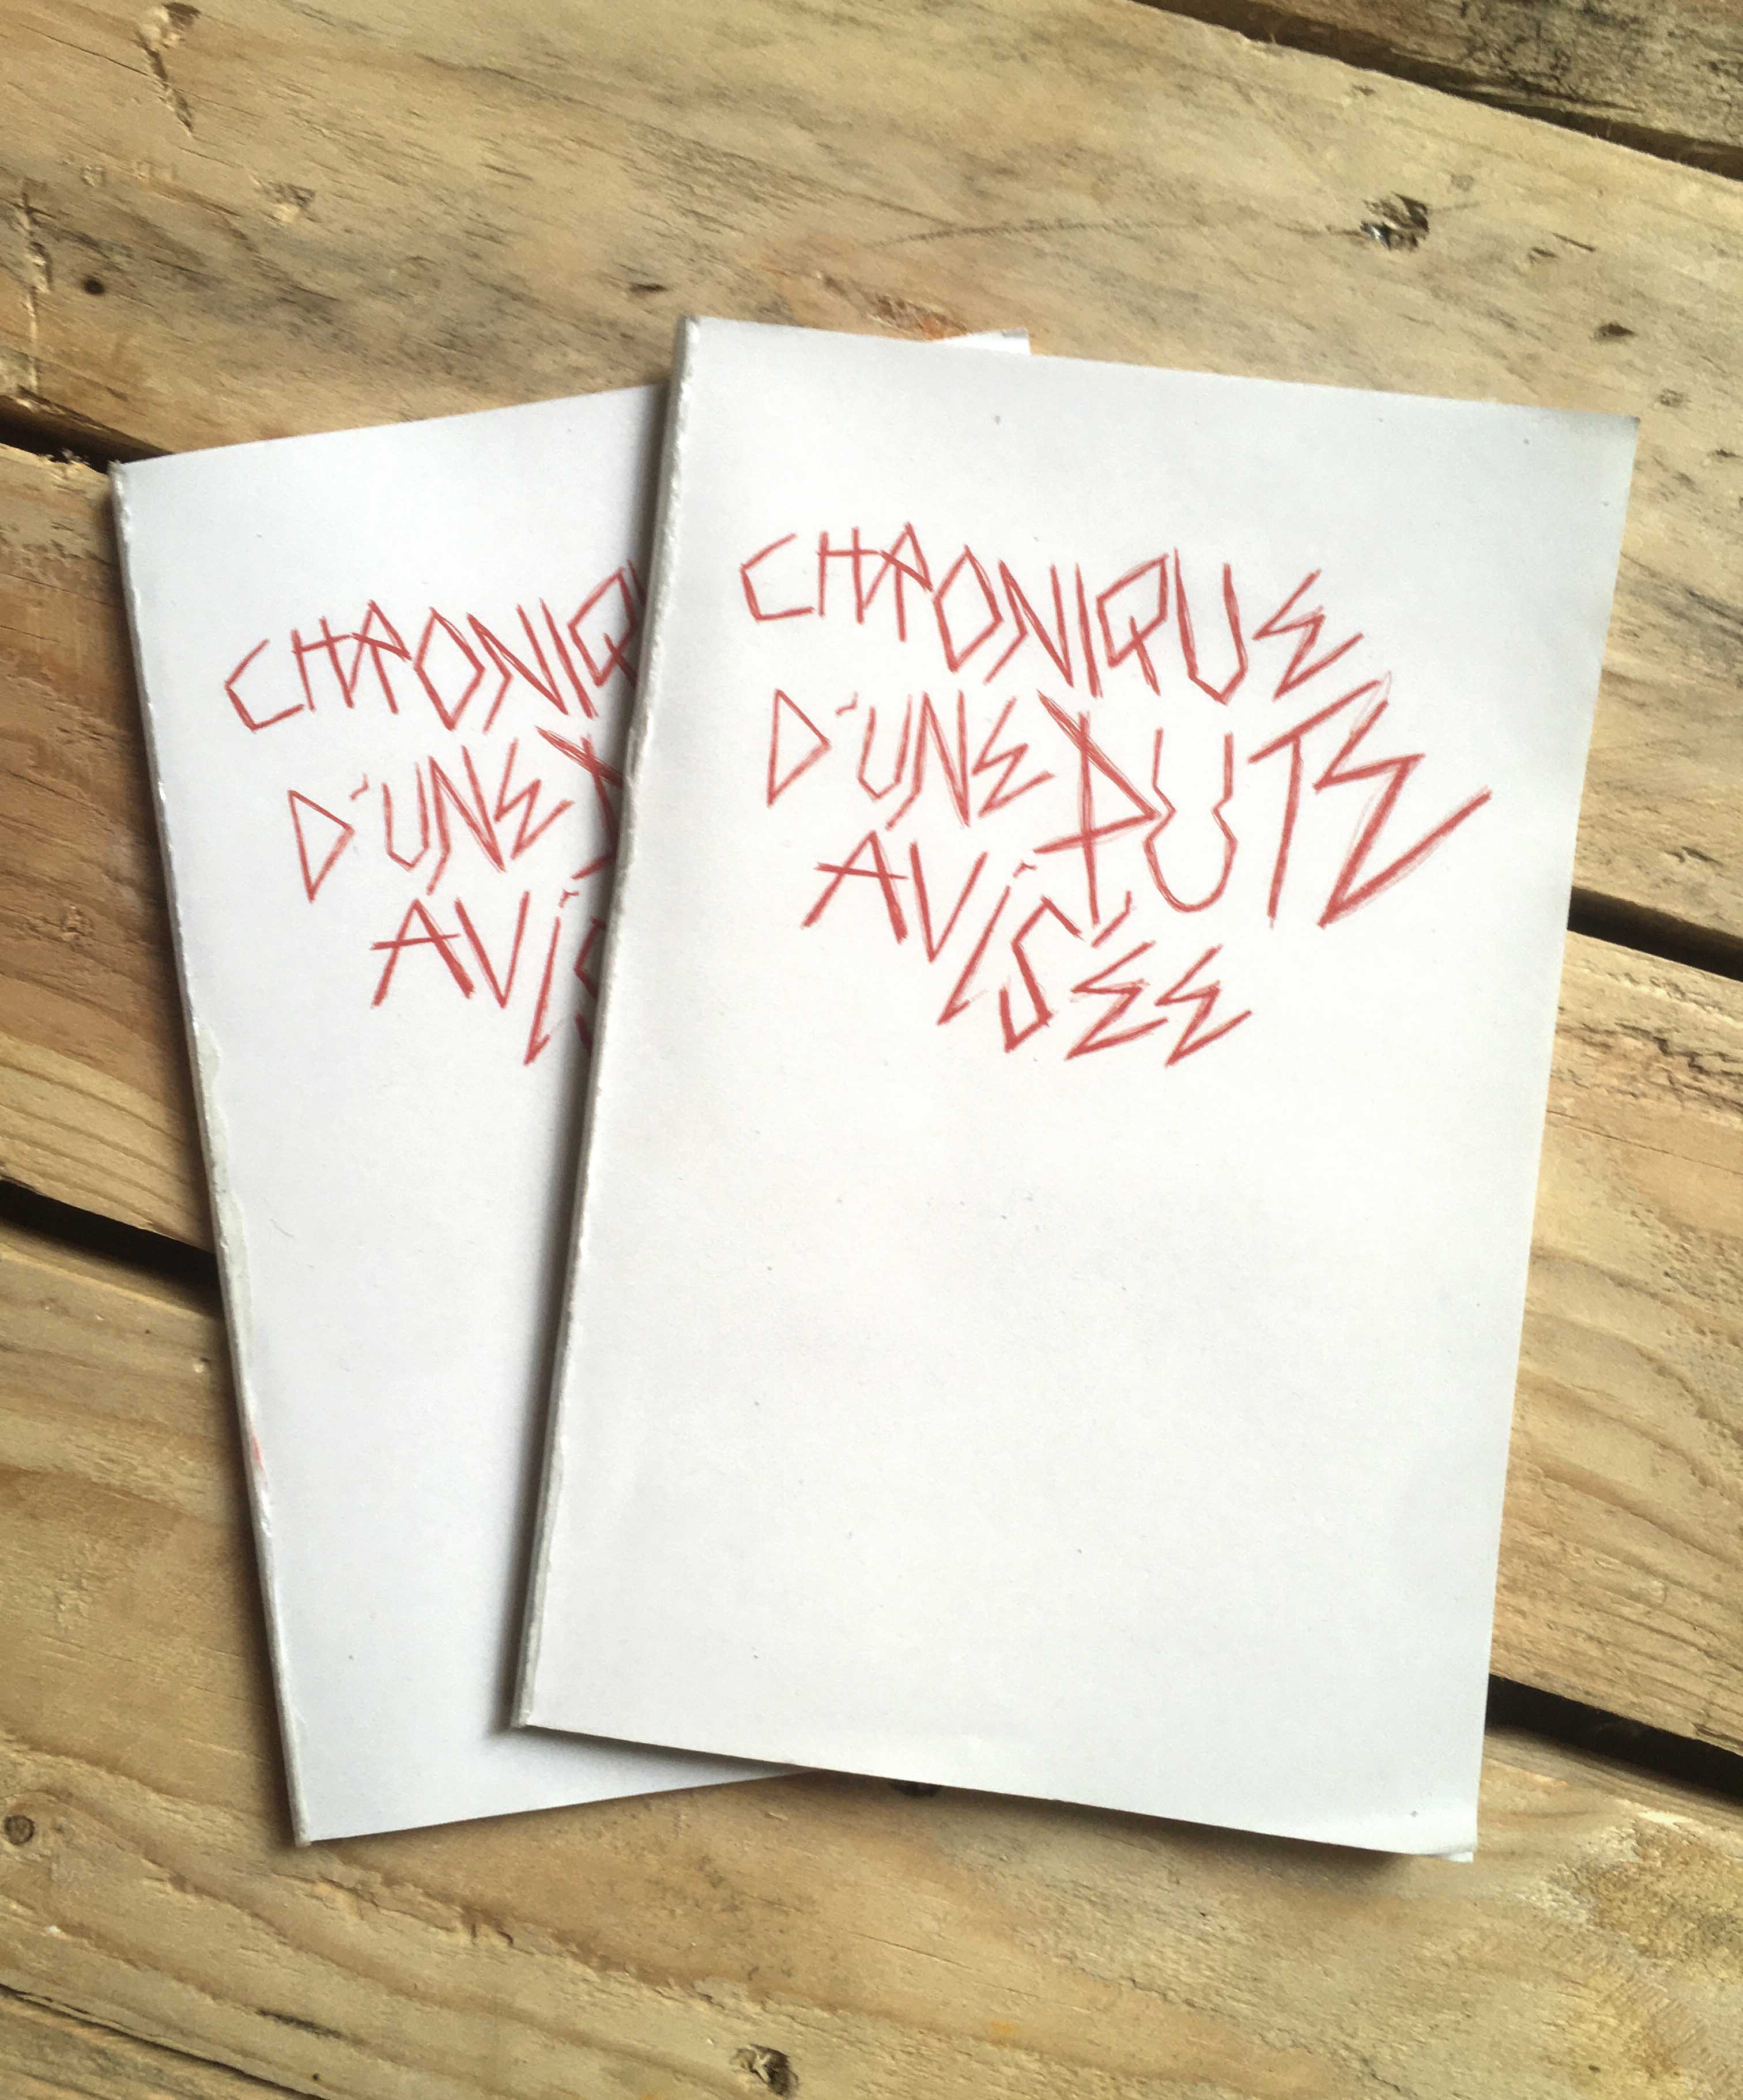 CHRONIQ
D'UNE
AVIS
CHRONIQUE
D'UNE PUTE
AVISÉE